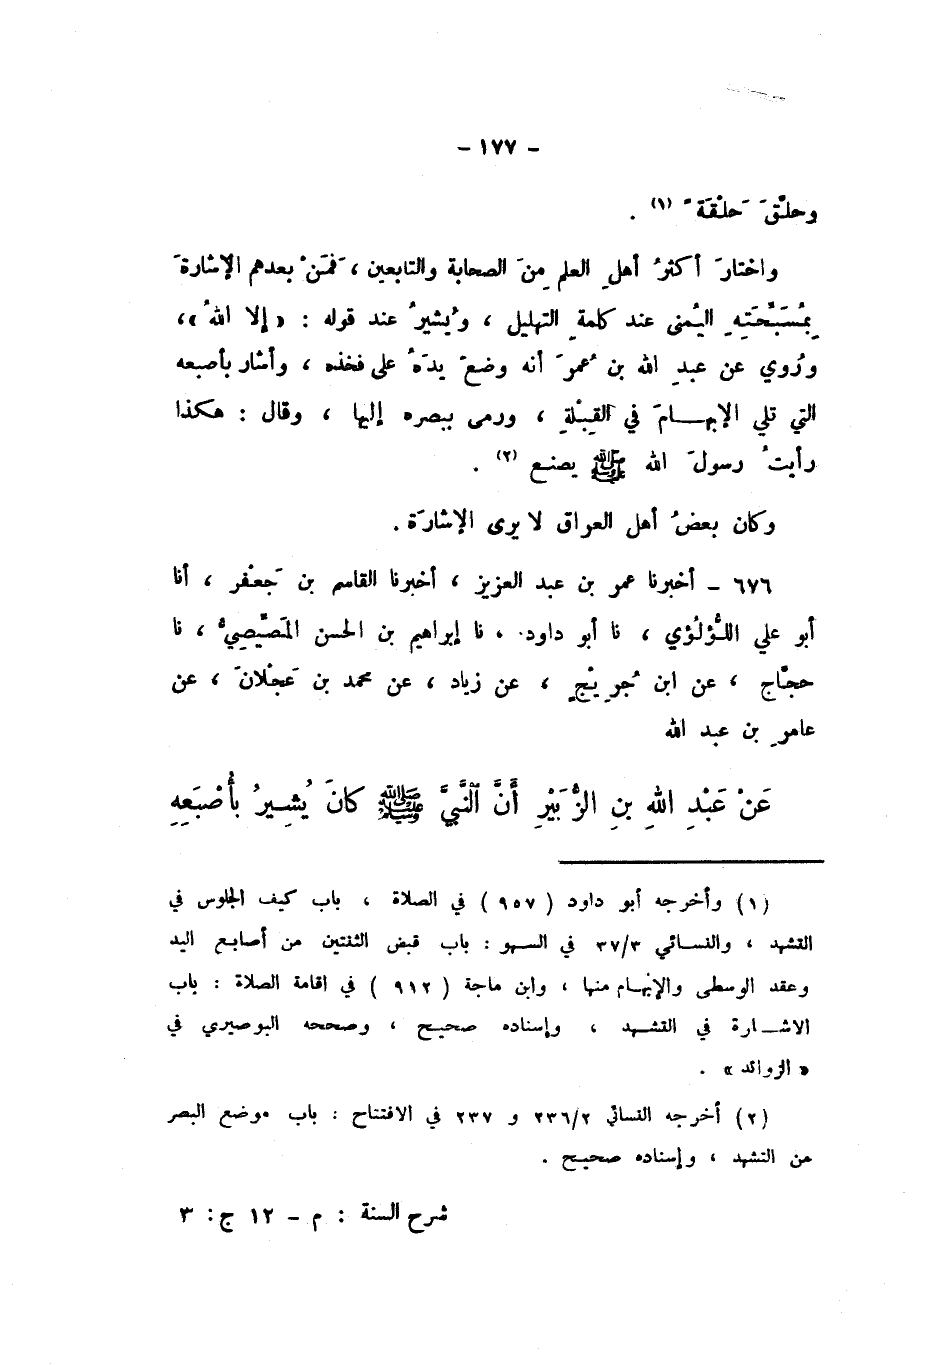 - ١٧٧ -
وحلَّقَ حَلْقَةً (١) .
واختارَ أكثرُ أهلِ العلمِ مِنَ الصحابة والتابعين ، فَمَنْ بعدهم الإشارةَ
بِمُسَبِّحَتِهِ اليُمنى عند كلمةِ التهليل ، ويُشيرُ عند قوله : « إلا اللهُ »،
ورُوي عن عبدِ الله بن عُمرَ أنه وضعَ يدَهُ على فخذه ، وأشار بأصبعه
التي تلي الإبهـــامَ في القِبْلةِ ، ورمى ببصره إليها ، وقال : هكذا
رأيتُ رسولَ الله ﷺ يصنع (٢) .
وكان بعضُ أهل العراق لا يرى الإشارَة .
٦٧٦ – أخبرنا عمر بن عبد العزيز ، أخبرنا القاسم بن جَعْفر ، أنا
أبو علي اللُّؤْلُؤي ، نا أبو داود ، نا إبراهيم بن الحسن المَصِّيصِيُّ ، نا
حجَّاج ، عن ابن جُرَيْجٍ ، عن زياد ، عن محمد بن عَجْلانَ ، عن
عامرِ بن عبد الله
عَنْ عَبْدِ اللهِ بنِ الزُّبَيْرِ أَنَّ النَّبِيَّ ﷺ كانَ يُشِيرُ بأُصْبَعِهِ
(١) وأخرجه أبو داود ( ٩٥٧ ) في الصلاة ، باب كيف الجلوس في
التشهد ، والنسائي ٣٧/٣ في السهو : باب قبض الثنتين من أصابع اليد
وعقد الوسطى والإبهام منها ، وابن ماجة ( ٩١٢ ) في اقامة الصلاة : باب
الاشـارة في التشهد ، وإسناده صحيح ، وصححه البوصيري في
« الزوائد » .
(٢) أخرجه النسائي ٢٣٦/٢ و ٢٣٧ في الافتتاح : باب موضع البصر
من التشهد ، وإسناده صحيح .
شرح السنة : م – ١٢ ج : ٣